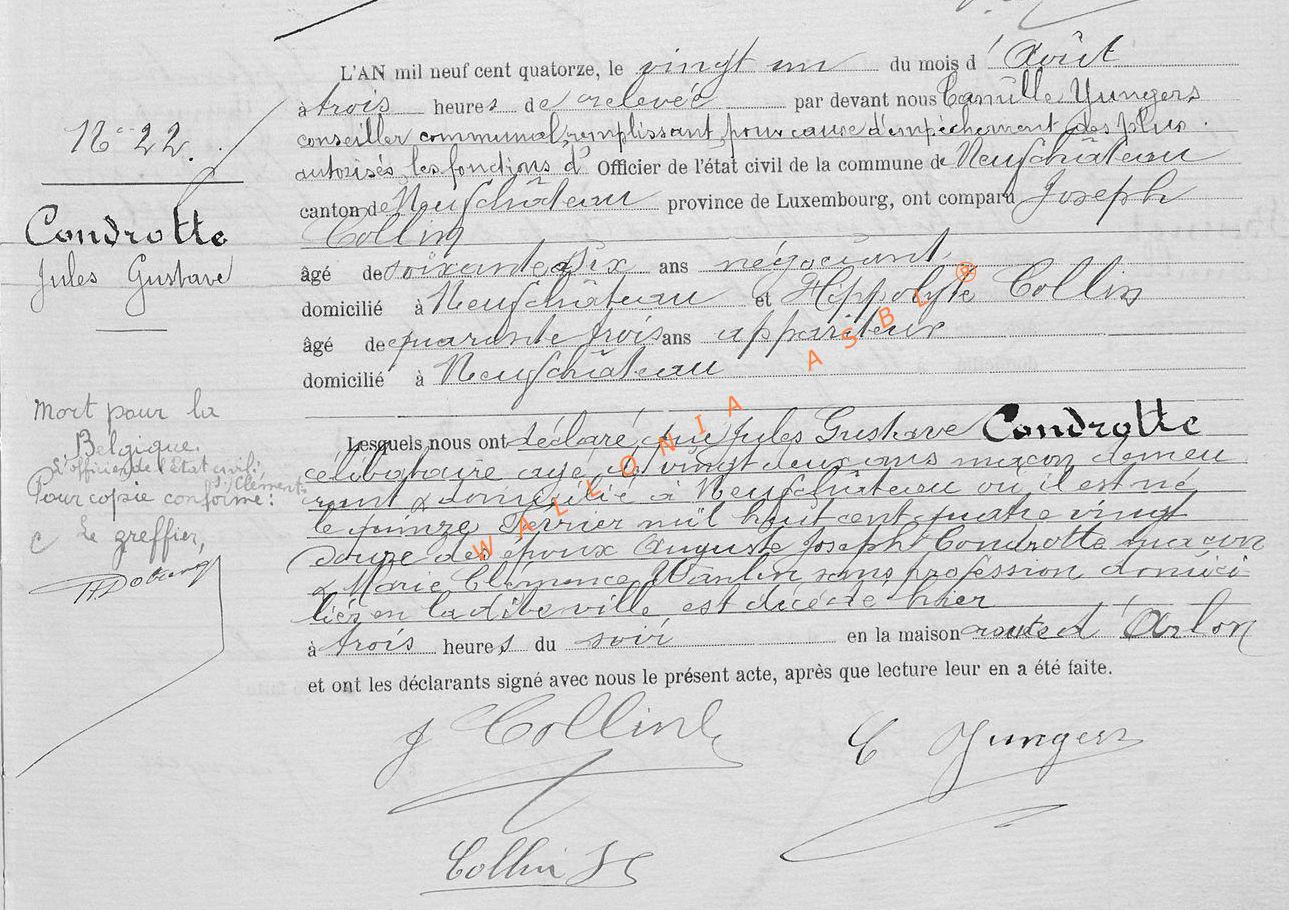 L'AN mil neuf cent quatorze, le vingt un du mois d'Août
à trois heures de relevée par devant nous Camille Yungers
conseiller communal, remplissant pour cause d'empêchement des plus
autorisés les fonctions d' Officier de l'état civil de la commune de Neufchâteau
canton de Neufchâteau province de Luxembourg, ont comparu Joseph
Collin
âgé de soixante dix ans négociant
domicilié à Neufchâteau et Hippolyte Collin
âgé de quarante trois ans appariteur
domicilié à Neufchâteau
Lesquels nous ont déclaré que Jules Gustave Condrotte
célibataire agé de vingt deux ans maçon demeu
rant & domicilié à Neufchâteau où il est né
le quinze Février mil huit cent quatre vingt
douze des époux Auguste Joseph Condrotte maçon
& Marie Clémence Wanlin sans profession domici
liés en la dite ville est décédé hier
à trois heures du soir en la maison route d'Arlon
et ont les déclarants signé avec nous le présent acte, après que lecture leur en a été faite.
J Collin
C Yungers
Collin H
No 22.
Condrotte
Jules Gustave
Mort pour la
Belgique.
L'officier de l'Etat civil,
s/ Clément
Pour copie conforme:
Le greffier,
WALLONIA ASBL ®